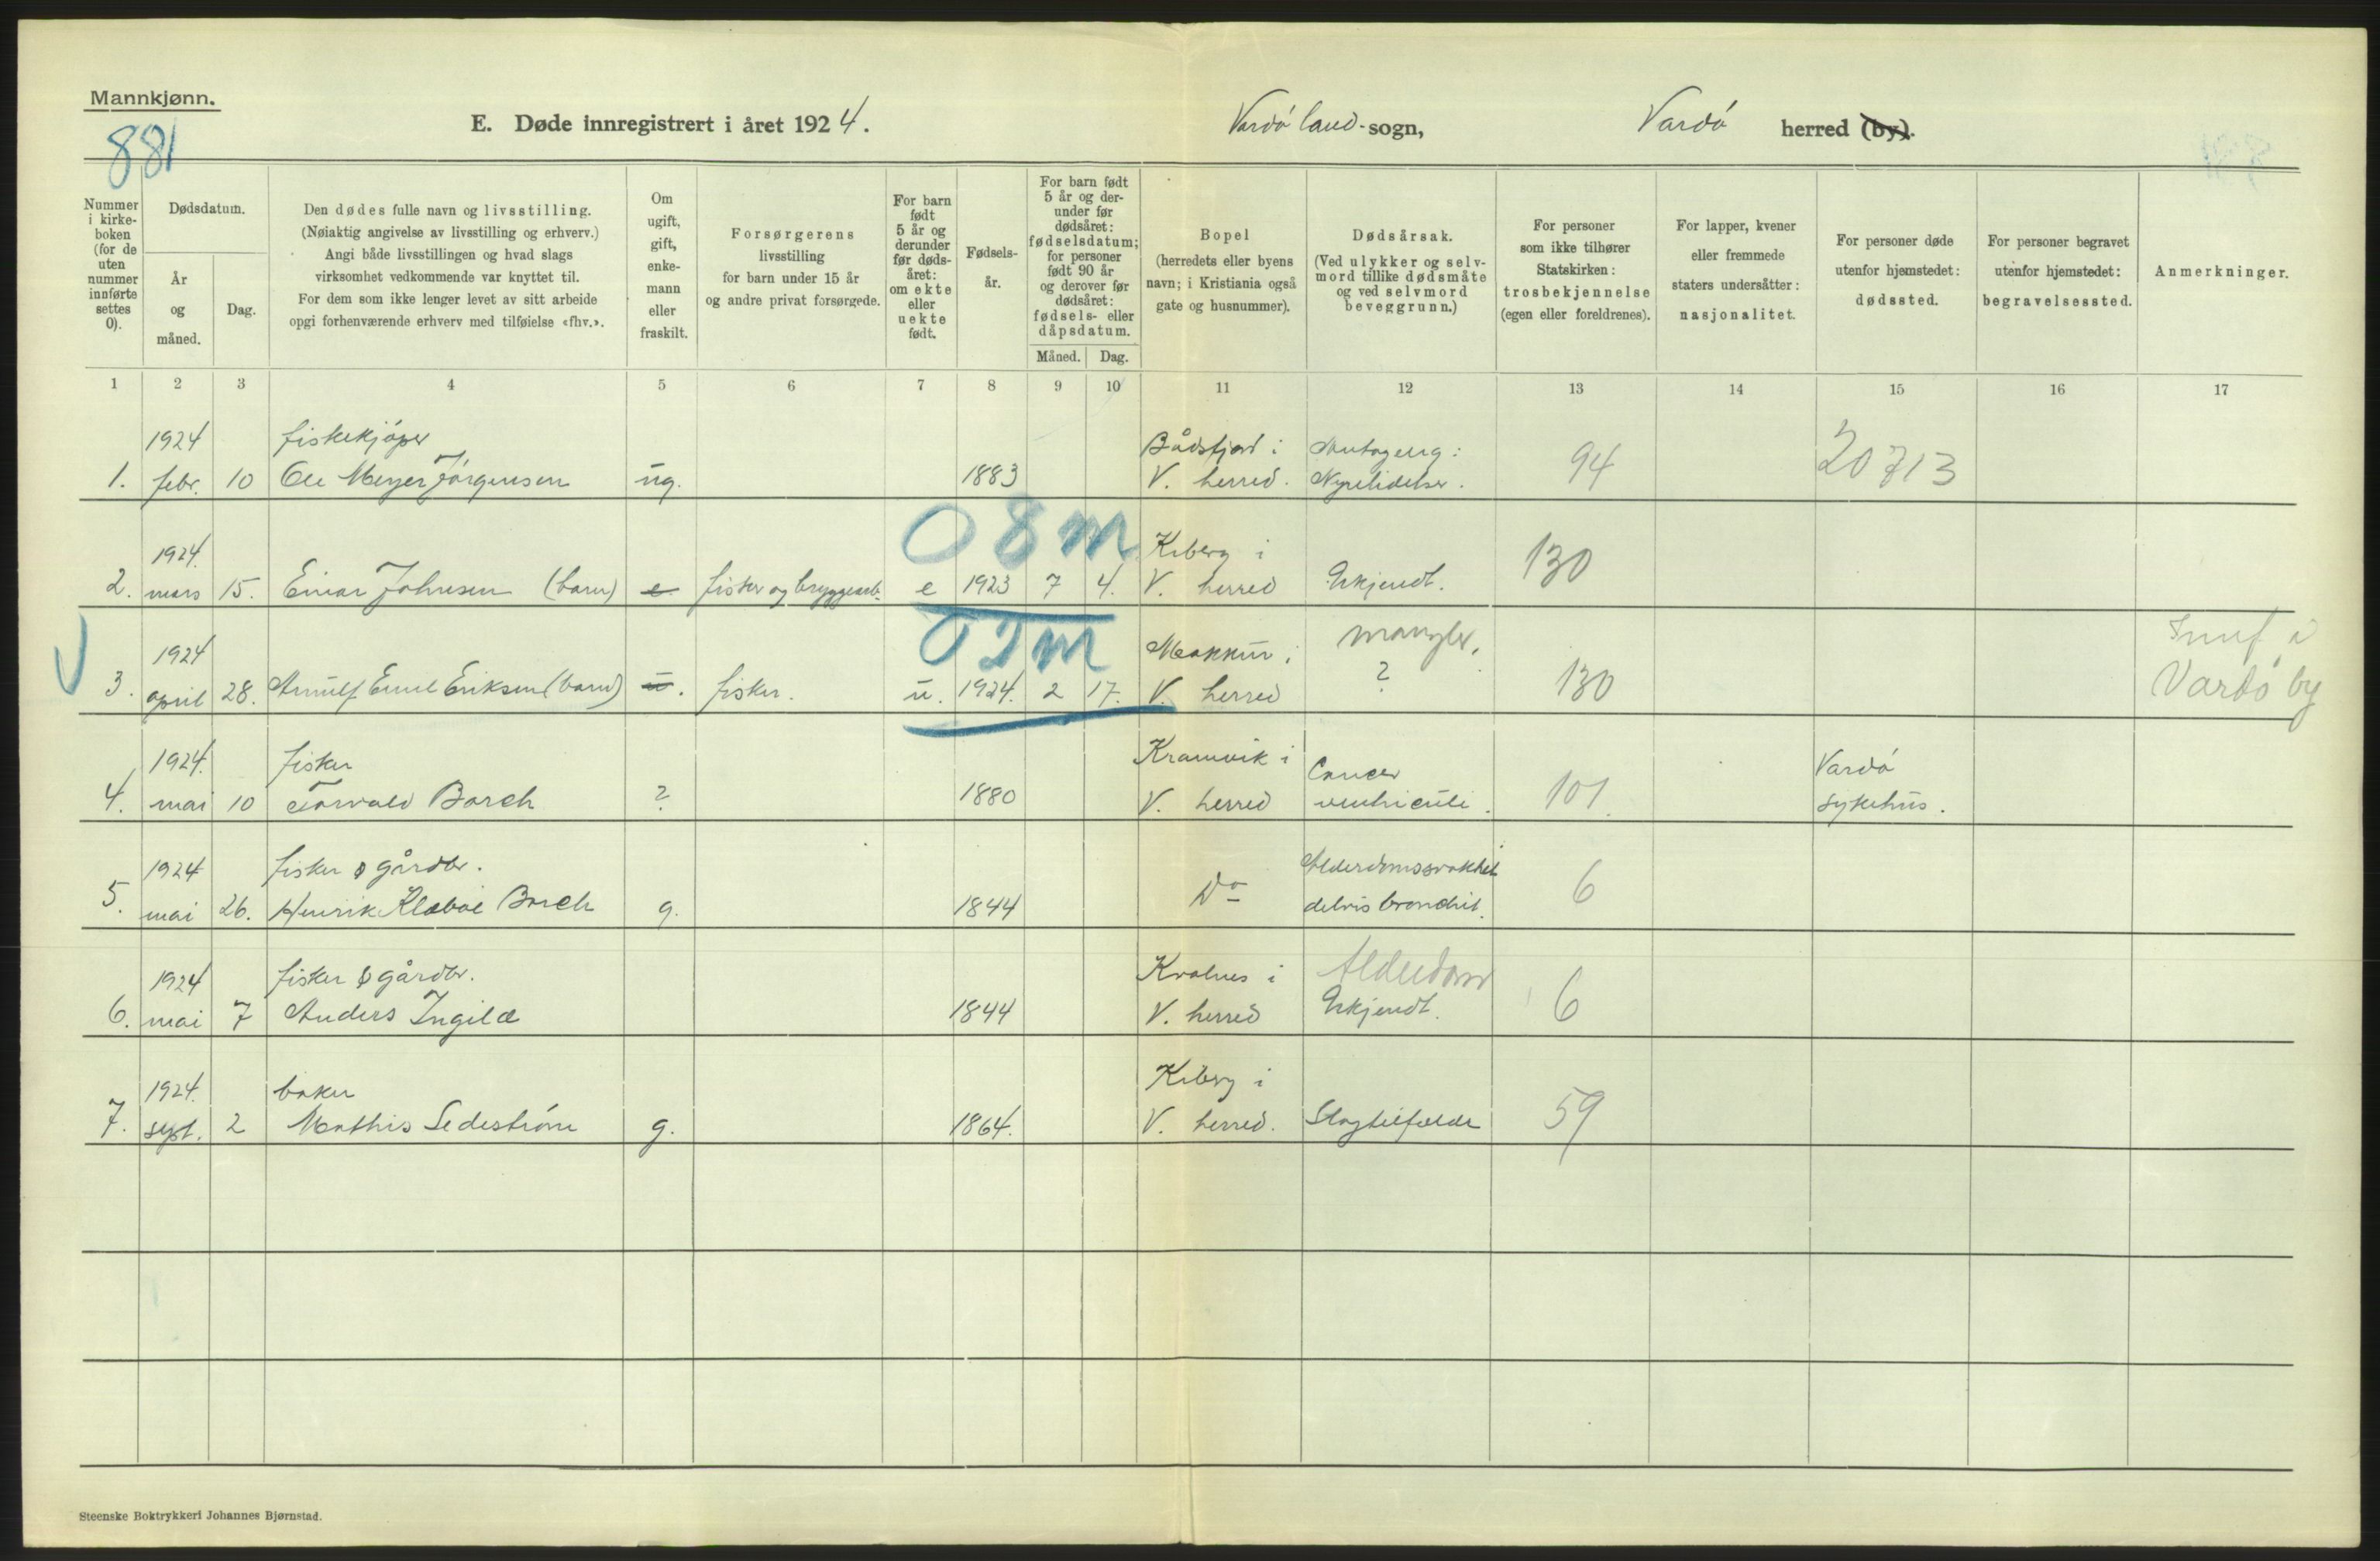 Mannkjønn.
881
E. Døde innregistrert i året 1924.
Vardø land-sogn,
Vardø herred (by).
Nummer i kirke-boken (for de uten nummer innførte settes 0).
Dødsdatum.
År og måned.
Dag.
Den dødes fulle navn og livsstilling.
(Nøiaktig angivelse av livsstilling og erhverv.)
Angi både livsstillingen og hvad slags
virksomhet vedkommende var knyttet til.
For dem som ikke lenger levet av sitt arbeide
opgi forhenværende erhverv med tilføielse «fhv.».
Om ugift, gift, enke-mann eller fraskilt.
Forsørgerens
livsstilling
for barn under 15 år
og andre privat forsørgede.
For barn født 5 år og derunder før døds-året: om ekte eller uekte født.
Fødsels-år.
For barn født 5 år og der-under før dødsåret: fødselsdatum; for personer født 90 år og derover før dødsåret: fødsels- eller dåpsdatum.
Måned. Dag.
Bopel
(herredets eller byens
navn; i Kristiania også
gate og husnummer).
Dødsårsak.
(Ved ulykker og selv-
mord tillike dødsmåte
og ved selvmord
beveggrunn.)
For personer
som ikke tilhører
Statskirken:
trosbekjennelse
(egen eller foreldrenes).
For lapper, kvener
eller fremmede
staters undersåtter:
nasjonalitet.
For personer døde
utenfor hjemstedet:
dødssted.
For personer begravet
utenfor hjemstedet:
begravelsessted.
Anmerkninger.
1 2 3 4 5 6 7 8 9 10 11 12 13 14 15 16 17
1924 fiskekjøper Bådsfjord i Antagelig: 20713
1. febr. 10 Ole Meyer Jørgensen ug. 1883 V. herred. Nyrelidelse. 94
08m
1924. Kiberg i 130
2. mars 15. Einar Johnsen (barn) e fisker og bryggearb. e 1923 7 4. V. herred Ukjendt.
02m
1924 Makkur i mangler, i
3. april 28. Arnulf Emil Eriksen (barn) u. fisker. u. 1924. 2 17. V. herred ? 130 Vardø by
1924. fisker Kramvik i Cancer Vardø
4. mai 10 Torvald Borch ? 1880 V. herred ventriculi. 101. sykehus.
1924 fisker & gårdbr. Alderdomssvakhet
5. mai 26. Henrik Klæboe Borch g. 1844 Do delvis bronchit. 6
1924 fisker & gårdbr. Kvalnes i Alderdom
6. mai 7 Anders Ingilæ 1844 V. herred Ukjendt. 6
1924. baker Kiberg i
7. sept. 2 Mathis Sedestrøm g. 1864. V. herred. Slagtilfælde 59
Steenske Boktrykkeri Johannes Bjørnstad.